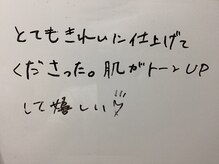 とてもきれいに仕上げて
くださった。肌がトーンUP
して嬉しい